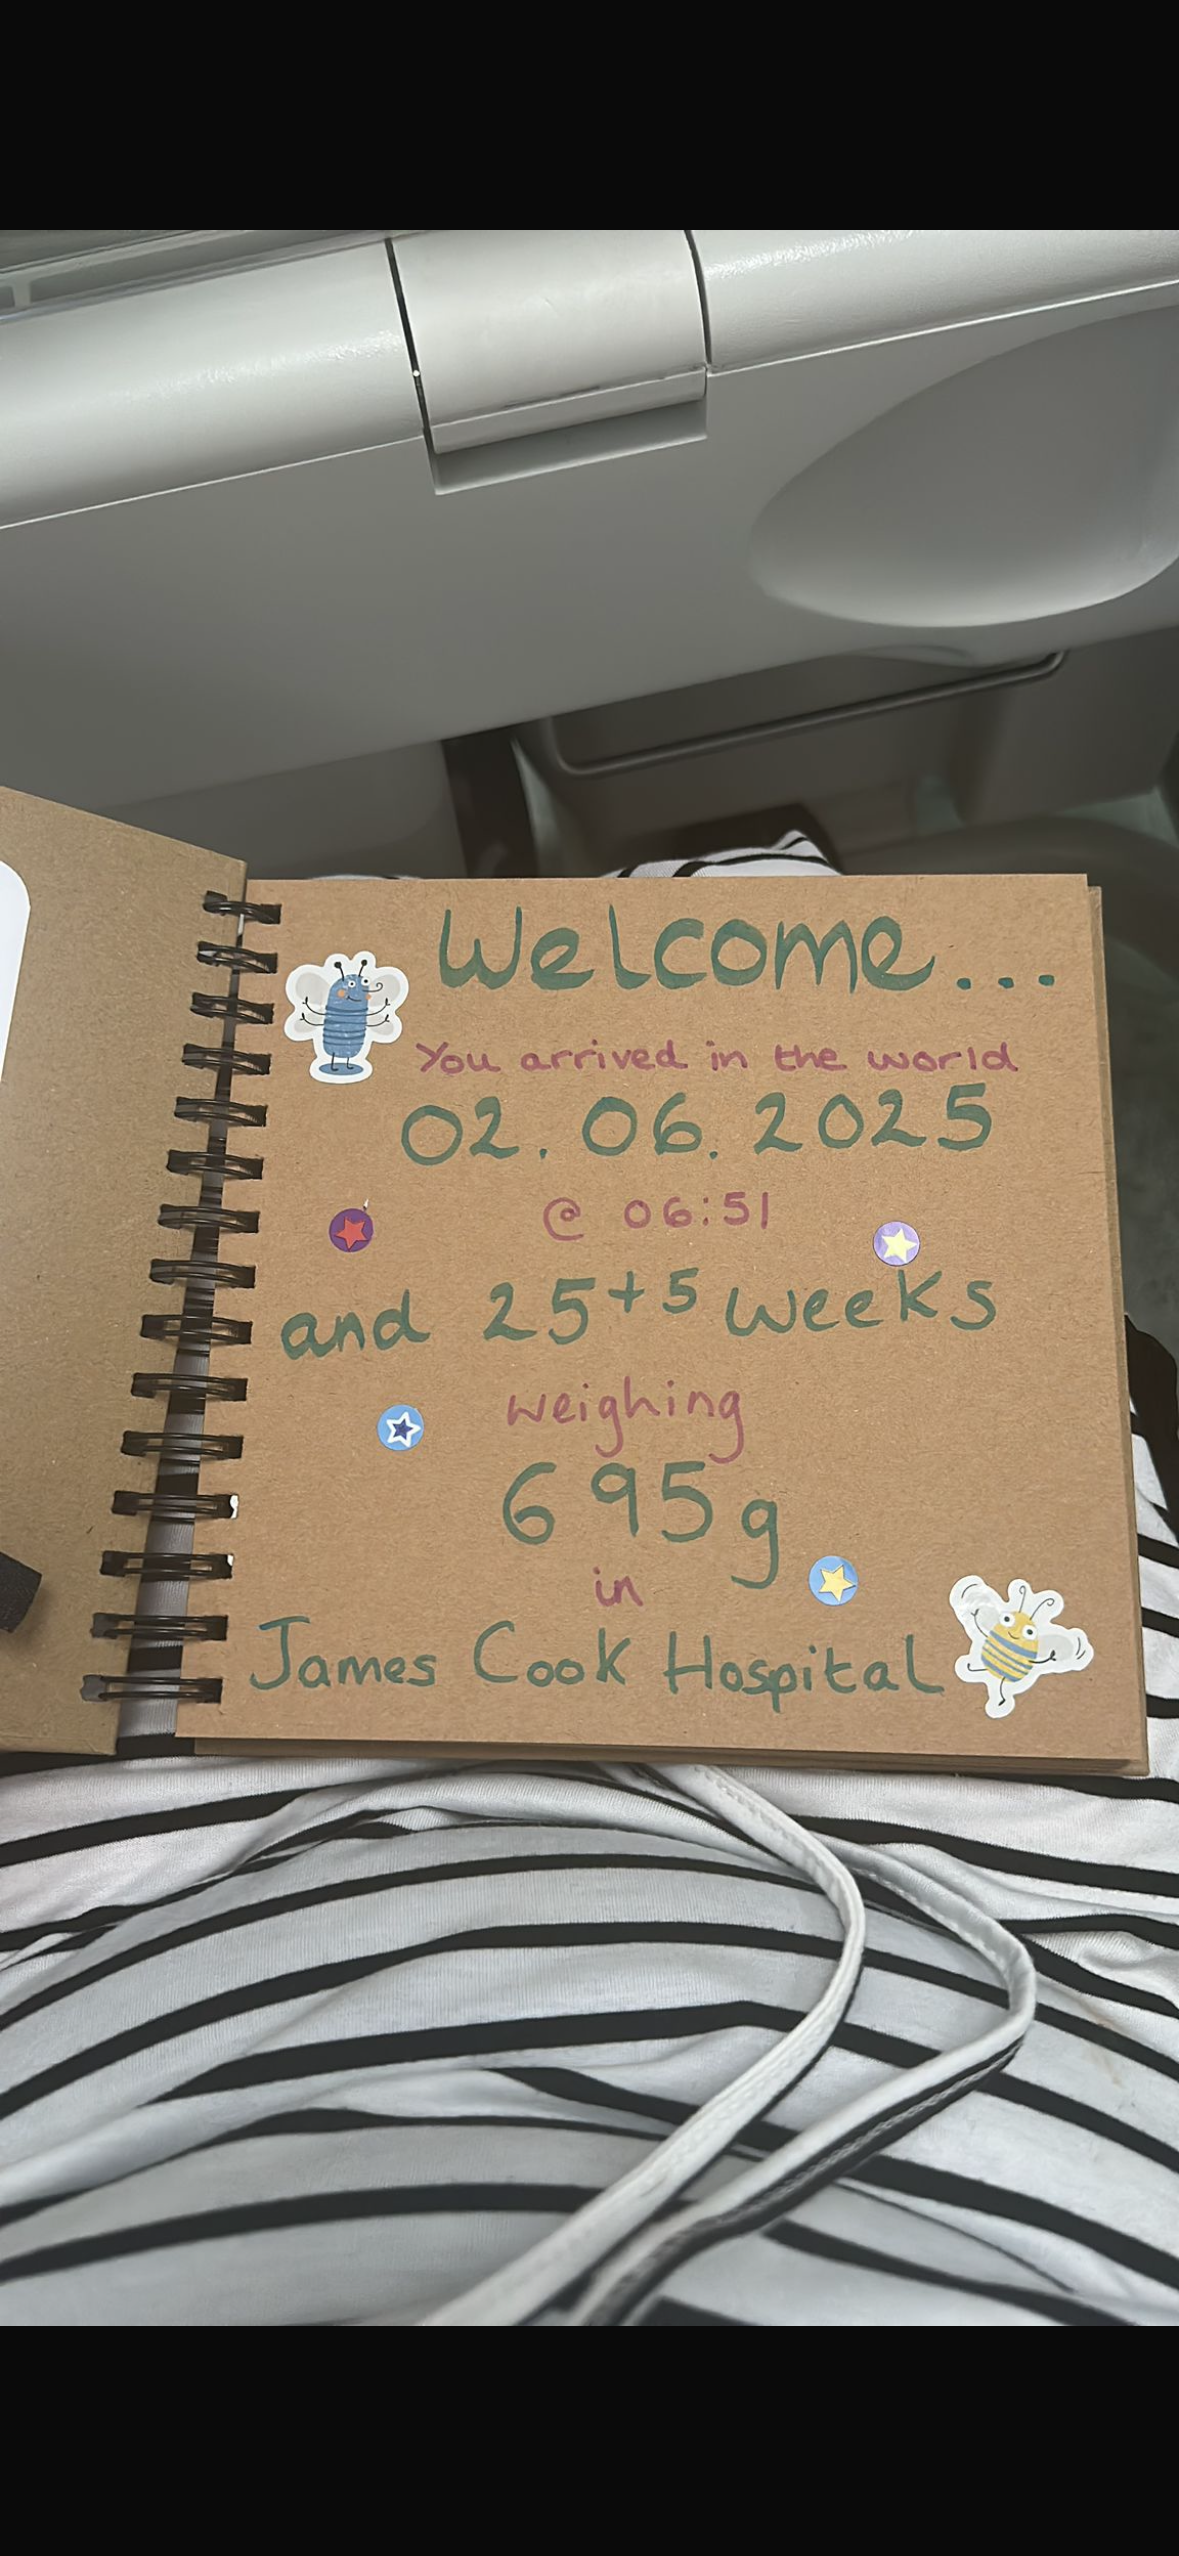 Welcome...
You arrived in the world
02.06.2025
@ 06:51
and 25+5 weeks
weighing
695g
in
James Cook Hospital